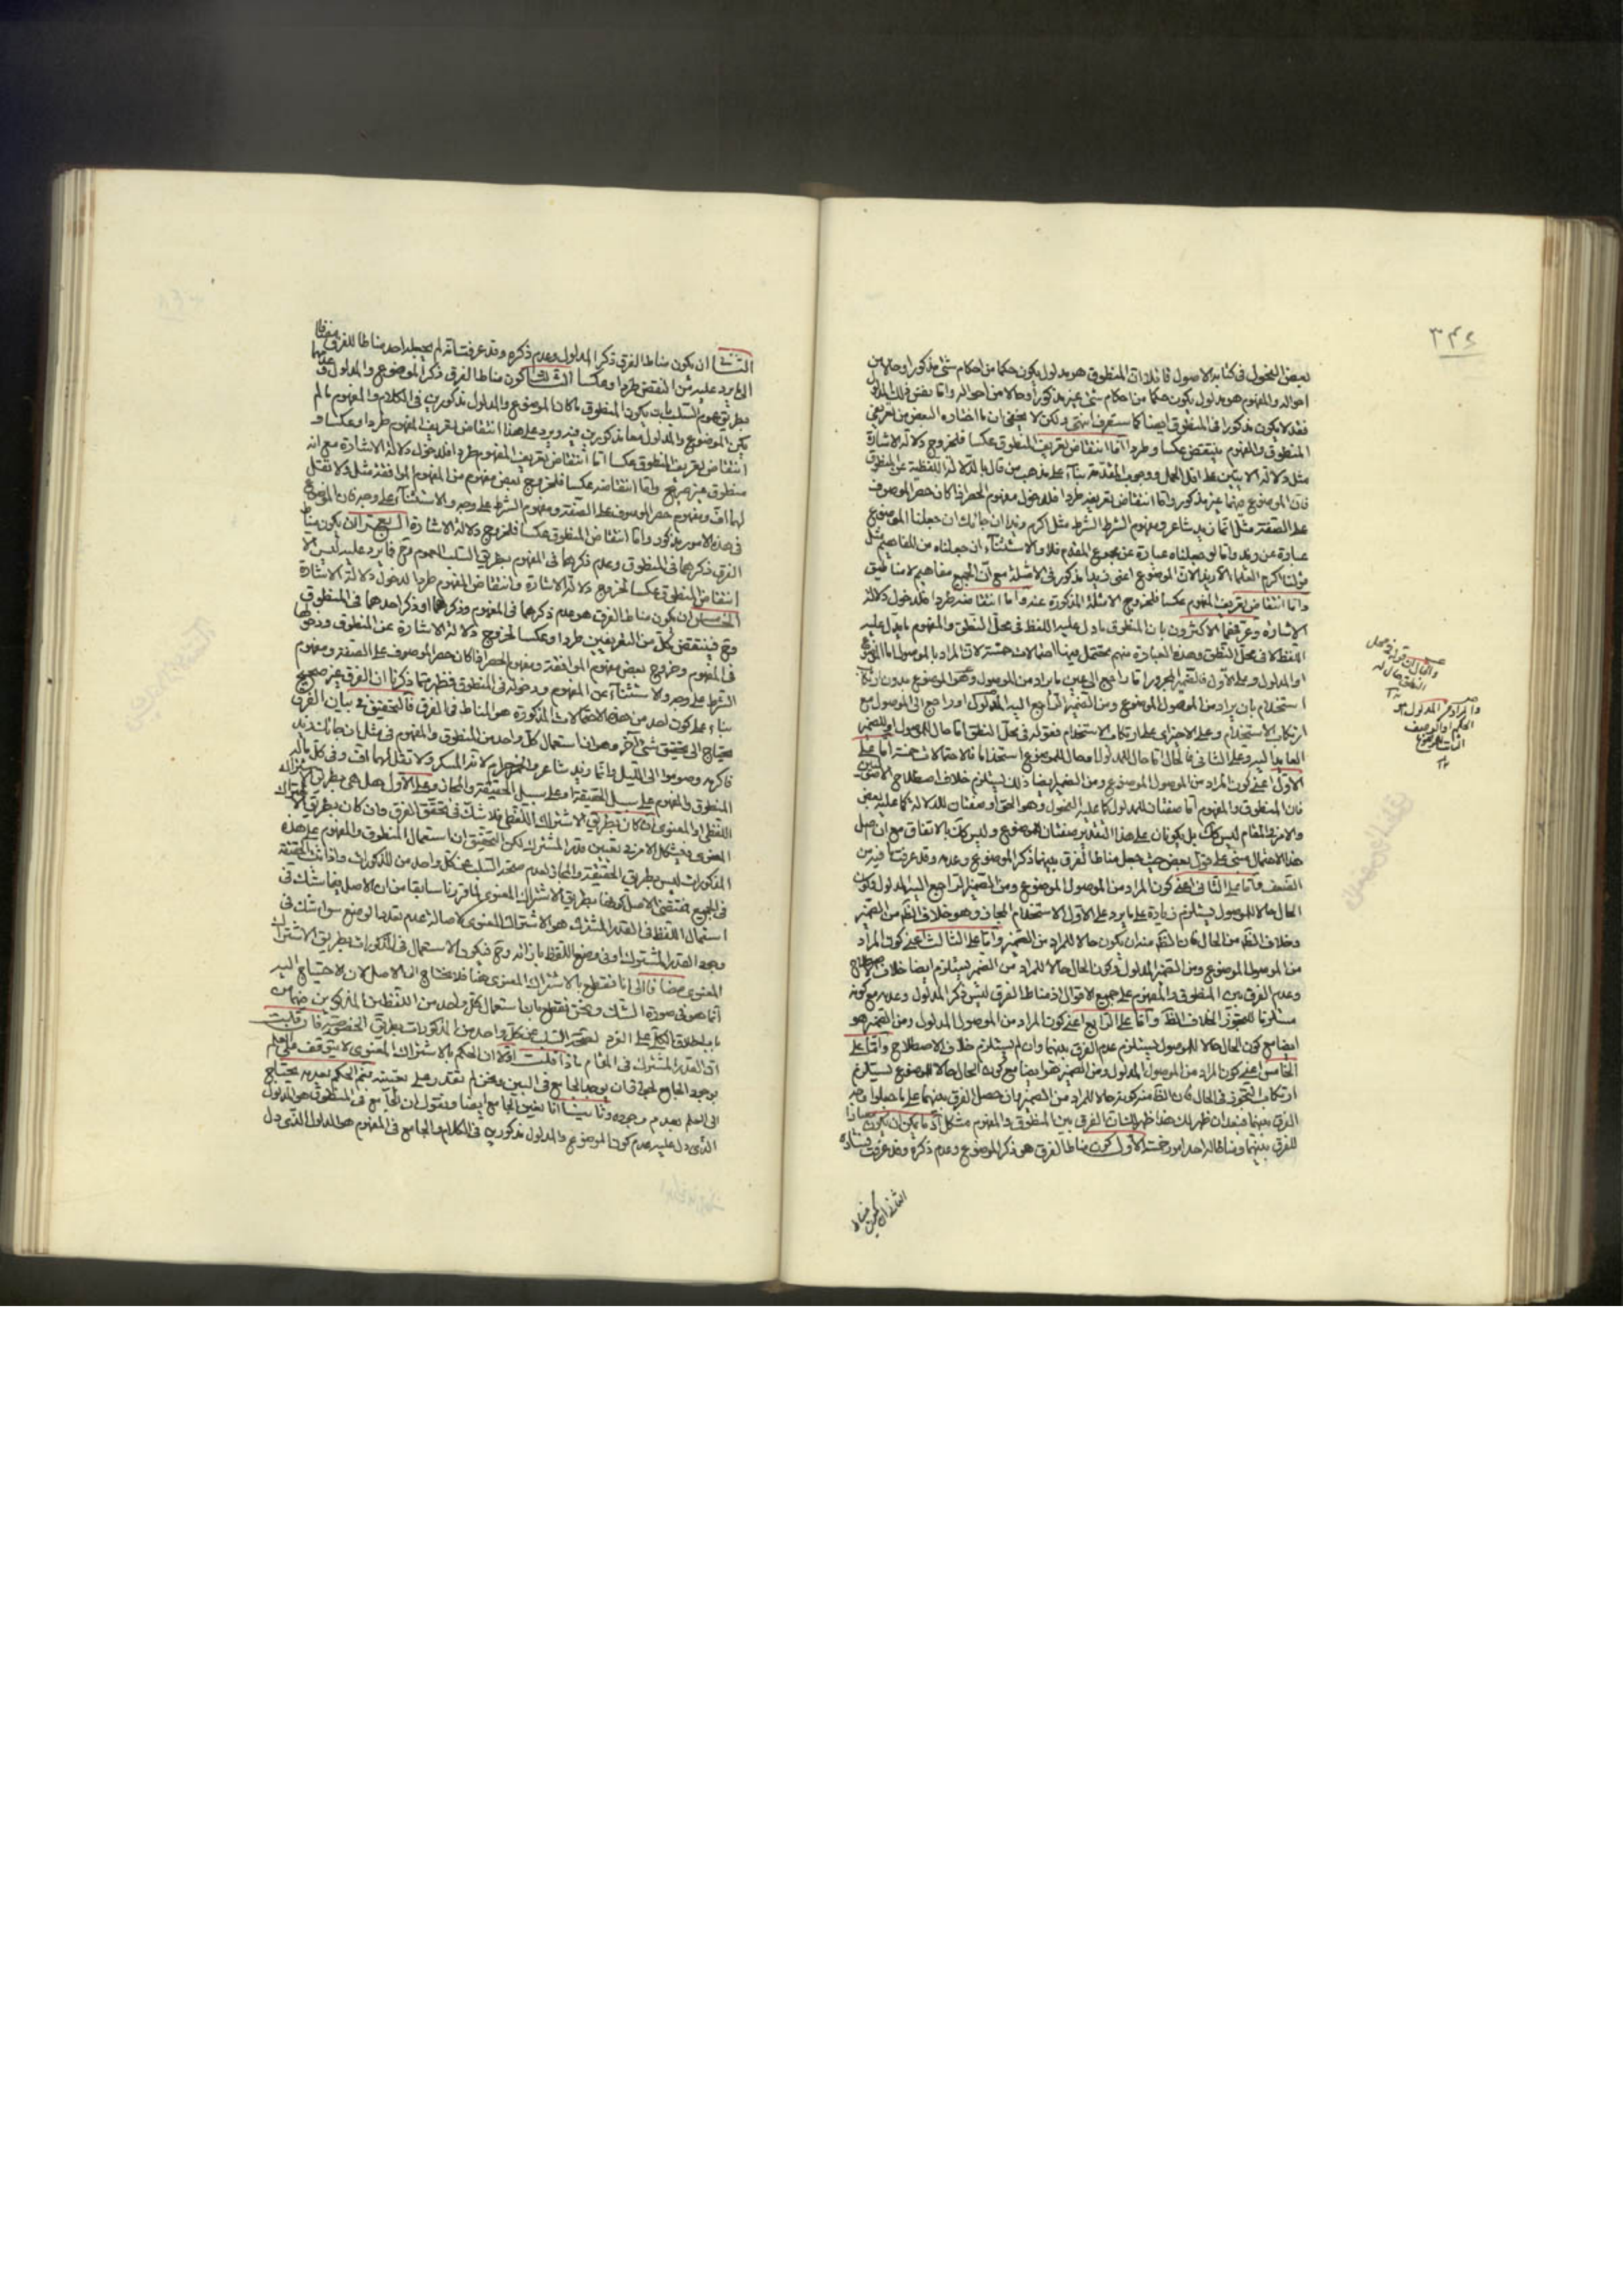 ٣٤٤
لبعض الفحول فى كتابه الاصول قائلا ان المنطوق هو مدلول يكون حكما من احكام شئ مذكور او حالا من
احواله والمفهوم هو مدلول يكون حكما من احكام شئ غير مذكور او حالا من احواله واما نفس ذلك المدلول
فقد لا يكون مذكورا فى المنطوق ايضا كما ستعرف انتهى ولكن لا يخفى ان ما اختاره البعض من تعريفى
المنطوق والمفهوم منتقض عكسا وطردا اما انتقاض تعريف المنطوق عكسا فلخروج دلالة الاشارة
مثل دلالة الايتين على اقل الحمل ووجوب المقدمة بناء على مذهب من قال بالدلالة اللفظية عن المنطوق
فان الموضوع فيهما غير مذكور واما انتقاض تعريفه طردا فلدخول مفهوم الحصر اذا كان حصر الموصوف
على الصفة مثل انما زيد شاعر ومفهوم الشرط مثل اكرم زيدا ان جائك ان جعلنا الموضوع
عبارة عن زيد واما لو جعلناه عبارة عن مجموع المقدم فلا والاستثناء ان جعلناه من المفاهيم مثل
قولنا اكرم العلما الا زيد الان الموضوع اعنى زيدا مذكور فى الامثلة مع ان الجميع مفاهيم لا مناطيق
واما انتقاض تعريف المفهوم عكسا فلخروج الامثلة المذكورة عنه واما انتقاضه طردا فلدخول دلالة
الاشارة وعرفهما الاكثرون بان المنطوق ما دل عليه اللفظ فى محل النطق والمفهوم ما دل عليه
اللفظ لا فى محل النطق وهذه العبارة منهم محتمل فيها احتمالات خمسة لان المراد بالموصول اما الموضوع
او المدلول وعلى الاول فالضمير المجرور اما راجع الى عين ما يراد من الموصول وهو الموضوع بدون ارتكاب
استخدام بان يراد من الموصول الموضوع ومن الضمير الراجع اليه المدلول او راجع الى الموصول مع
ارتكاب الاستخدام وعلى الاخير اى على ارتكاب الاستخدام فقوله فى محل النطق اما حال للموصول او للضمير
العايد اليه وعلى الثانى فالحال اما حال للمدلول او حال للموضوع استخداما فالاحتمالات خمسة اما على
الاول اعنى كون المراد من الموصول الموضوع ومن الضمير ايضا ذلك يستلزم خلاف اصطلاح الاصوليين
فان المنطوق والمفهوم اما صفتان للمدلول كما عليه الفحول وهو الحق او صفتان للدلالة كما عليه بعض
والامر فى المقام ليس كك بل يكونان على هذا التقدير صفتان للموضوع وليس كك بالاتفاق مع ان اصل
هذا الاحتمال مبنى على قول بعض حيث جعل مناط الفرق بينهما ذكر الموضوع وعدمه وقد عرفت ما فيه من
الضعف واما على الثانى اعنى كون المراد من الموصول الموضوع ومن الضمير الراجع اليه المدلول وكون
الحال حالا للموصول يستلزم زيادة على ما يرد على الاول الاستخدام المجازى وهو خلاف الظ من الضمير
وخلاف الظ من الحال فان الظ منه ان يكون حالا للمراد من الضمير واما على الثالث اعنى كون المراد
من الموصول الموضوع ومن الضمير المدلول وكون الحال حالا للمراد من الضمير يستلزم ايضا خلاف الاصطلاح
وعدم الفرق بين المنطوق والمفهوم على جميع الاقوال اذ مناط الفرق ليس ذكر المدلول وعدمه مع كونه
مستلزما للتجوز الخلاف الظ واما على الرابع اعنى كون المراد من الموصول المدلول ومن الضمير هو
ايضا مع كون الحال حالا للموصول يستلزم عدم الفرق بينهما وان لم يستلزم خلاف الاصطلاح واما على
الخامس اعنى كون المراد من الموصول المدلول ومن الضمير هو ايضا مع كون الحال حالا للموضوع يستلزم
ارتكاب التجوز فى الحال فان الظ منه كونه حالا للمراد من الضمير وان حصل الفرق بينهما على ما جعلوا وجه
الفرق بينهما فبعد ان ظهر لك هذا ظهر لك ان الفرق بين المنطوق والمفهوم مشكل اذ ما يمكن ان يكون معيارا
للفرق بينهما ومناطا له احد امور خمسة الاول كون مناط الفرق هو ذكر الموضوع وعدم ذكره وقد عرفت فساده
الثانى ان يكون مناط
والمراد ذكر المدلول
الحكم او الوصف
الثابت للموضوع
الثانى ان يكون مناط الفرق ذكر المدلول وعدم ذكره وقد عرفت انه لم يجعله احد مناطا للفرق مضافا
الى ما يرد عليه من النقض طردا وعكسا الثالث كون مناط الفرق ذكر الموضوع والمدلول وعدمهما
بطريق عموم السلب بان يكون المنطوق ما كان الموضوع والمدلول مذكورين فى الكلام والمفهوم ما لم
يكن الموضوع والمدلول معا مذكورين فيه ويرد على هذا انتقاض تعريف المفهوم طردا وعكسا و
انتقاض تعريف المنطوق عكسا اما انتقاض تعريف المفهوم طردا فلدخول دلالة الاشارة مع انه
منطوق غير صريح واما انتقاضه عكسا فلخروج بعض مفهوم من المفهوم الموافقة مثل ولا تقل
لهما اف ومفهوم حصر الموصوف على الصفة ومفهوم الشرط على وجه والاستثناء على وجه فان الموضوع
فى هذه الامور مذكور واما انتقاض المنطوق عكسا فلخروج دلالة الاشارة الرابع ان يكون مناط
الفرق ذكرهما فى المنطوق وعدم ذكرهما فى المفهوم بطريق السلب العموم وح فما يرد عليه ليس الا
انتقاض المنطوق عكسا لخروج دلالة الاشارة وانتقاض المفهوم طردا لدخول دلالة الاشارة
الخامس ان يكون مناط الفرق هو عدم ذكرهما فى المفهوم وذكرهما او ذكر احدهما فى المنطوق
وح فينتقض كل من التعريفين طردا وعكسا لخروج دلالة الاشارة عن المنطوق ودخولها
فى المفهوم وخروج بعض مفهوم الموافقة ومفهوم الحصر اذا كان حصر الموصوف على الصفة ومفهوم
الشرط على وجه والاستثناء عن المفهوم ودخوله فى المنطوق فظهر مما ذكرنا ان الفرق غير صحيح
بناء على كون احد من هذه الاحتمالات المذكورة هو المناط فى الفرق فالتحقيق فى بيان الفرق
يحتاج الى تحقيق شئ آخر وهو ان استعمال كل واحد من المنطوق والمفهوم فى مثل ان جائك زيد
فاكرمه وصوموا الى الليل وانما زيد شاعر والخمر حرام لانه المسكر ولا تقل لهما اف وفى كل ما له
المنطوق والمفهوم على سبيل الحقيقة او على سبيل الحقيقة والمجاز وعلى الاول هل هى بطريق الاشتراك
اللفظى او المعنوى فان كان بطريق الاشتراك اللفظى فلا شك فى تحقق الفرق وان كان بطريق الاشتراك
المعنوى فيشكل الامر فى تعيين قدر المشترك لكن التحقيق ان استعمال المنطوق والمفهوم على هذه
المذكورات ليس بطريق الحقيقة والمجاز لعدم صحة السلب عن كل واحد من المذكورات واذا ثبت الحقيقة
فى الجميع فمقتضى الاصل كونها بطريق الاشتراك المعنوى لما قررنا سابقا من ان الاصل فيما شك فى
استعمال اللفظ فى القدر المشترك هو الاشتراك المعنوى لاصالة عدم تعدد الوضع سواء شك فى
وجود القدر المشترك او فى وضع اللفظ بازائه وح فيكون الاستعمال فى المذكورات بطريق الاشتراك
المعنوى مضافا الى انا نقطع بالاشتراك المعنوى هنا فلا يحتاج الى الاصل لان الاحتياج اليه
انما هو فى صورة الشك ونحن نقطع بان استعمال كل واحد من اللفظين المذكورين فيهما من
باب اطلاق الكلى على الفرد لصحة السلب عن كل واحد من المذكورات بطريق الخصوصية فان قلت
ان القدر المشترك فى المقام ماذا قلت اولا ان الحكم بالاشتراك المعنوى لا يتوقف على العلم
بوجود الجامع لجواز ان يوجد الجامع فى البين ونحن لم نقدر على تعيينه نعم الحكم بعدمه يحتاج
الى العلم بعدم وجوده وثانيا انا نعين الجامع ايضا ونقول ان الجامع فى المنطوق هو المدلول
الذى دل عليه عدم كون الموضوع والمدلول مذكورين فى الكلام والجامع فى المفهوم هو المدلول الذى دل